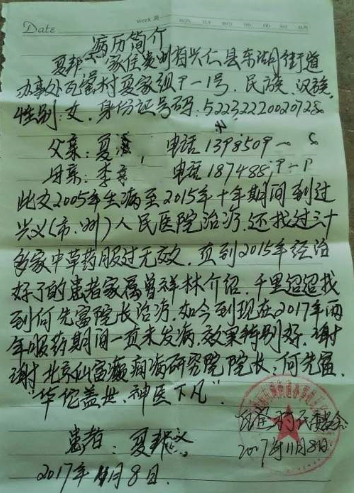 Date
病历简介
夏邦 家住贵州省兴仁县东湖街道
办事处瓦窑村夏家组 1号，民族：汉族
性别：女，身份证号码：52232220020728
父亲：夏 电话1398509
母亲：李 电话187488
此女2005年生病至2015年十年期间到过
兴义(市、州)人民医院治疗，还找过三十
多家中草药服过无效，直到2015年经治
好了的患者家属曾祥林介绍，千里迢迢找
到何先富院长治疗，如今到现在2017年两
年服药期间一直未发病，效果特别好，谢
谢北京 癫痫病研究院院长：何先富
“华佗盖世，神医下凡”
患者：夏邦 2017年11月8日
2017年11月8日